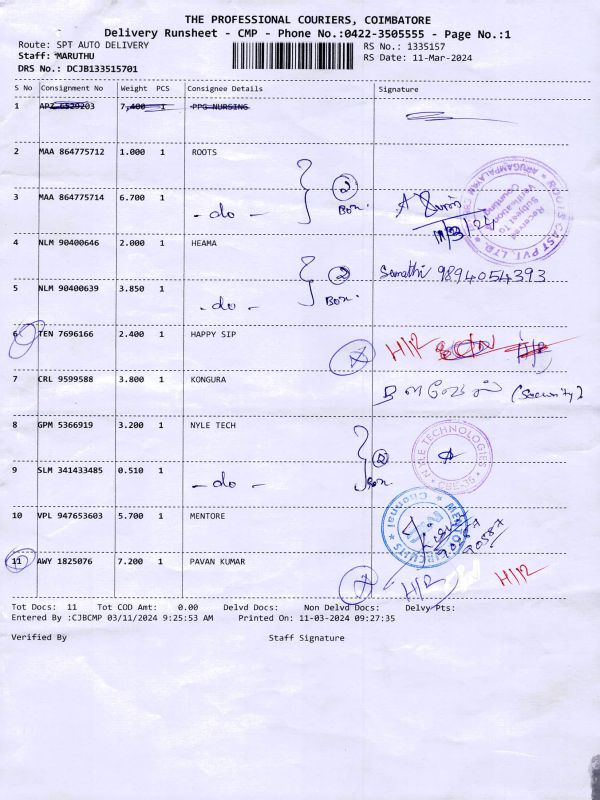 THE PROFESSIONAL COURIERS, COIMBATORE
Delivery Runsheet - CMP - Phone No.:0422-3505555 - Page No.:1
Route: SPT AUTO DELIVERY RS No.: 1335157
Staff: MARUTHU RS Date: 11-Mar-2024
DRS No.: DCJB133515701
S No Consignment No Weight PCS Consignee Details Signature
1 7,400 1 PPG NURSING
2 MAA 864775712 1.000 1 ROOTS
2
Box.
3 MAA 864775714 6.700 1 - do -
11/3/24
ROOTS CAST PVT. LTD. ARUGAMPALAYAM
Received Subject To Verification Counting
4 NLM 90400646 2.000 1 HEAMA
2
Box.
Sumathi 9894054393
5 NLM 90400639 3.850 1 - do -
6 TEN 7696166 2.400 1 HAPPY SIP
H/R
7 CRL 9599588 3.800 1 KONGURA
(Security)
8 GPM 5366919 3.200 1 NYLE TECH
2
Box.
NYLE TECHNOLOGIES
CBE-35
9 SLM 341433485 0.510 1 - do -
10 VPL 947653603 5.700 1 MENTORE
Chennai
11 AWY 1825076 7.200 1 PAVAN KUMAR
H/R H/R
Tot Docs: 11 Tot COD Amt: 0.00 Delvd Docs: Non Delvd Docs: Delvy Pts:
Entered By :CJBCMP 03/11/2024 9:25:53 AM Printed On: 11-03-2024 09:27:35
Verified By Staff Signature